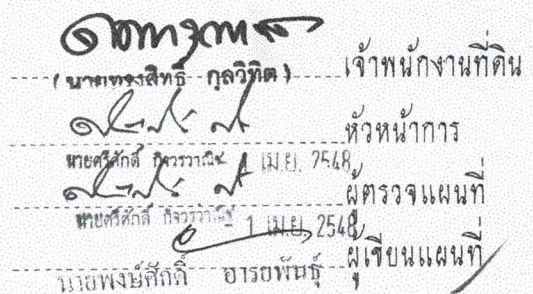 (นายทรงสิทธิ์ กุลวิทิต) เจ้าพนักงานที่ดิน
หัวหน้าการ
นายศรีศักดิ์ กิจวรวาณิช 1 เม.ย. 2548
ผู้ตรวจแผนที่
นายศรีศักดิ์ กิจวรวาณิช - 1 เม.ย. 2548
ผู้เขียนแผนที่
นายพงษ์ศักดิ์ อารอยพันธุ์